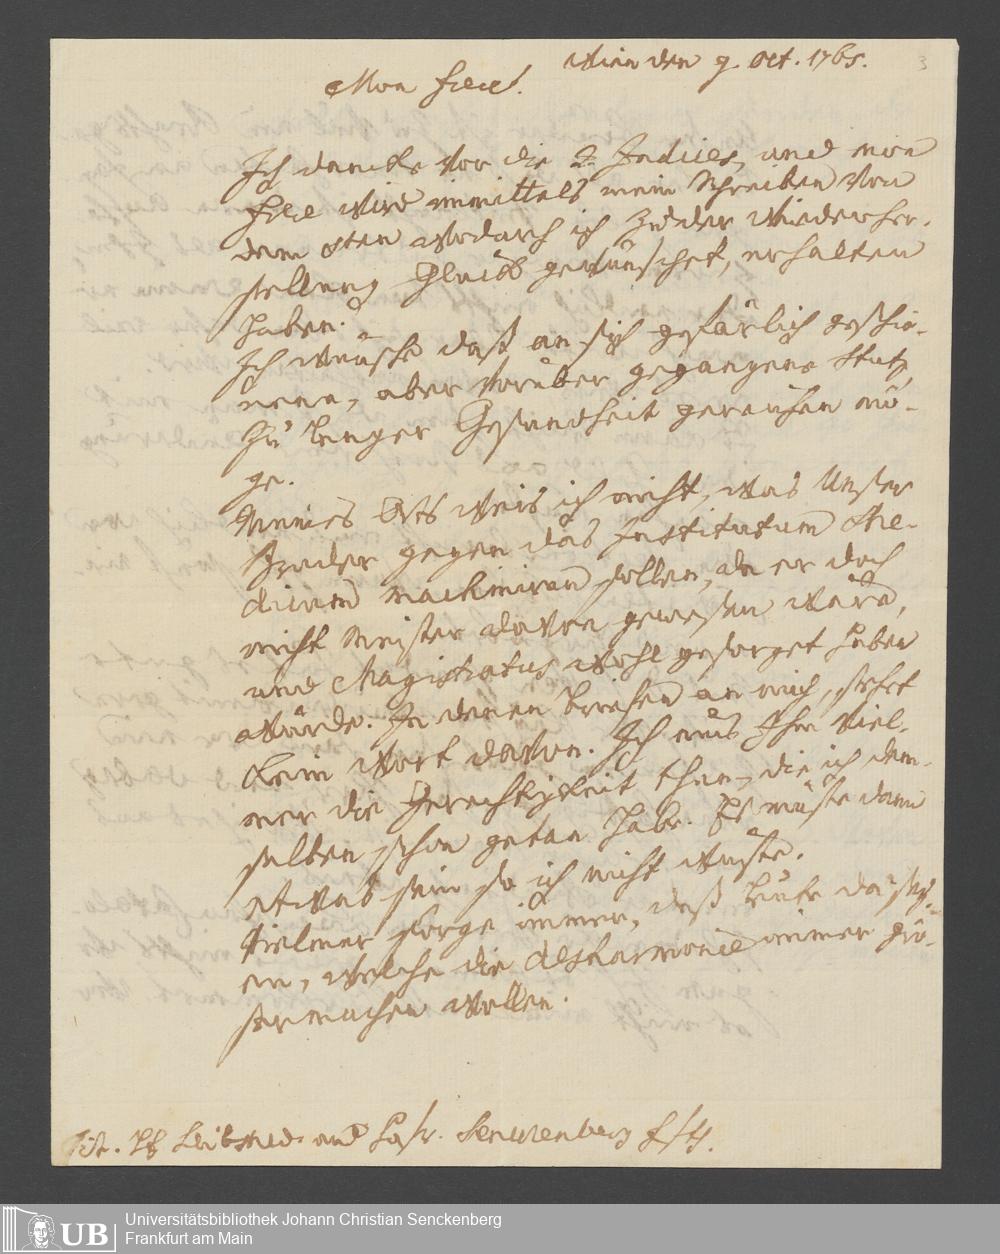 Wien den 9. Oct. 1765.
3
Mon frere!
Ich dancke vor die 2. Indices, und mon
frere wird inmittels mein Schreiben von
dem 8ten wodurch ich zu der Wiederher-
stellung Glück gewünschet, erhalten
haben.
Ich wünsche daß an sich gefärlich geschie-
nene, aber vorüber gegangene
zu langer Gesundheit gereichen mö-
ge.
Meines Orts weis ich nicht, was Unser
Bruder gegen das Institutum Me-
dicum machiniren sollen, da er doch
nicht Meister davon gewesen wäre,
und Magistratus wohl gesorget haben
würde. In denen Briefen an mich, stehet
kein Wort davon. Ich mus Ihm viel-
mer die Gerechtigkeit thun, die ich dem-
selben schon getan habe. Es müste dann
etwas sein so ich nicht wüste.
Vielmer sorge immer, daß Leute da sey-
en, welche die desharmonie immer grö-
ser machen wollen.
Tit. Leibmed. und Senckenberg
UB
Universitätsbibliothek Johann Christian Senckenberg
Frankfurt am Main